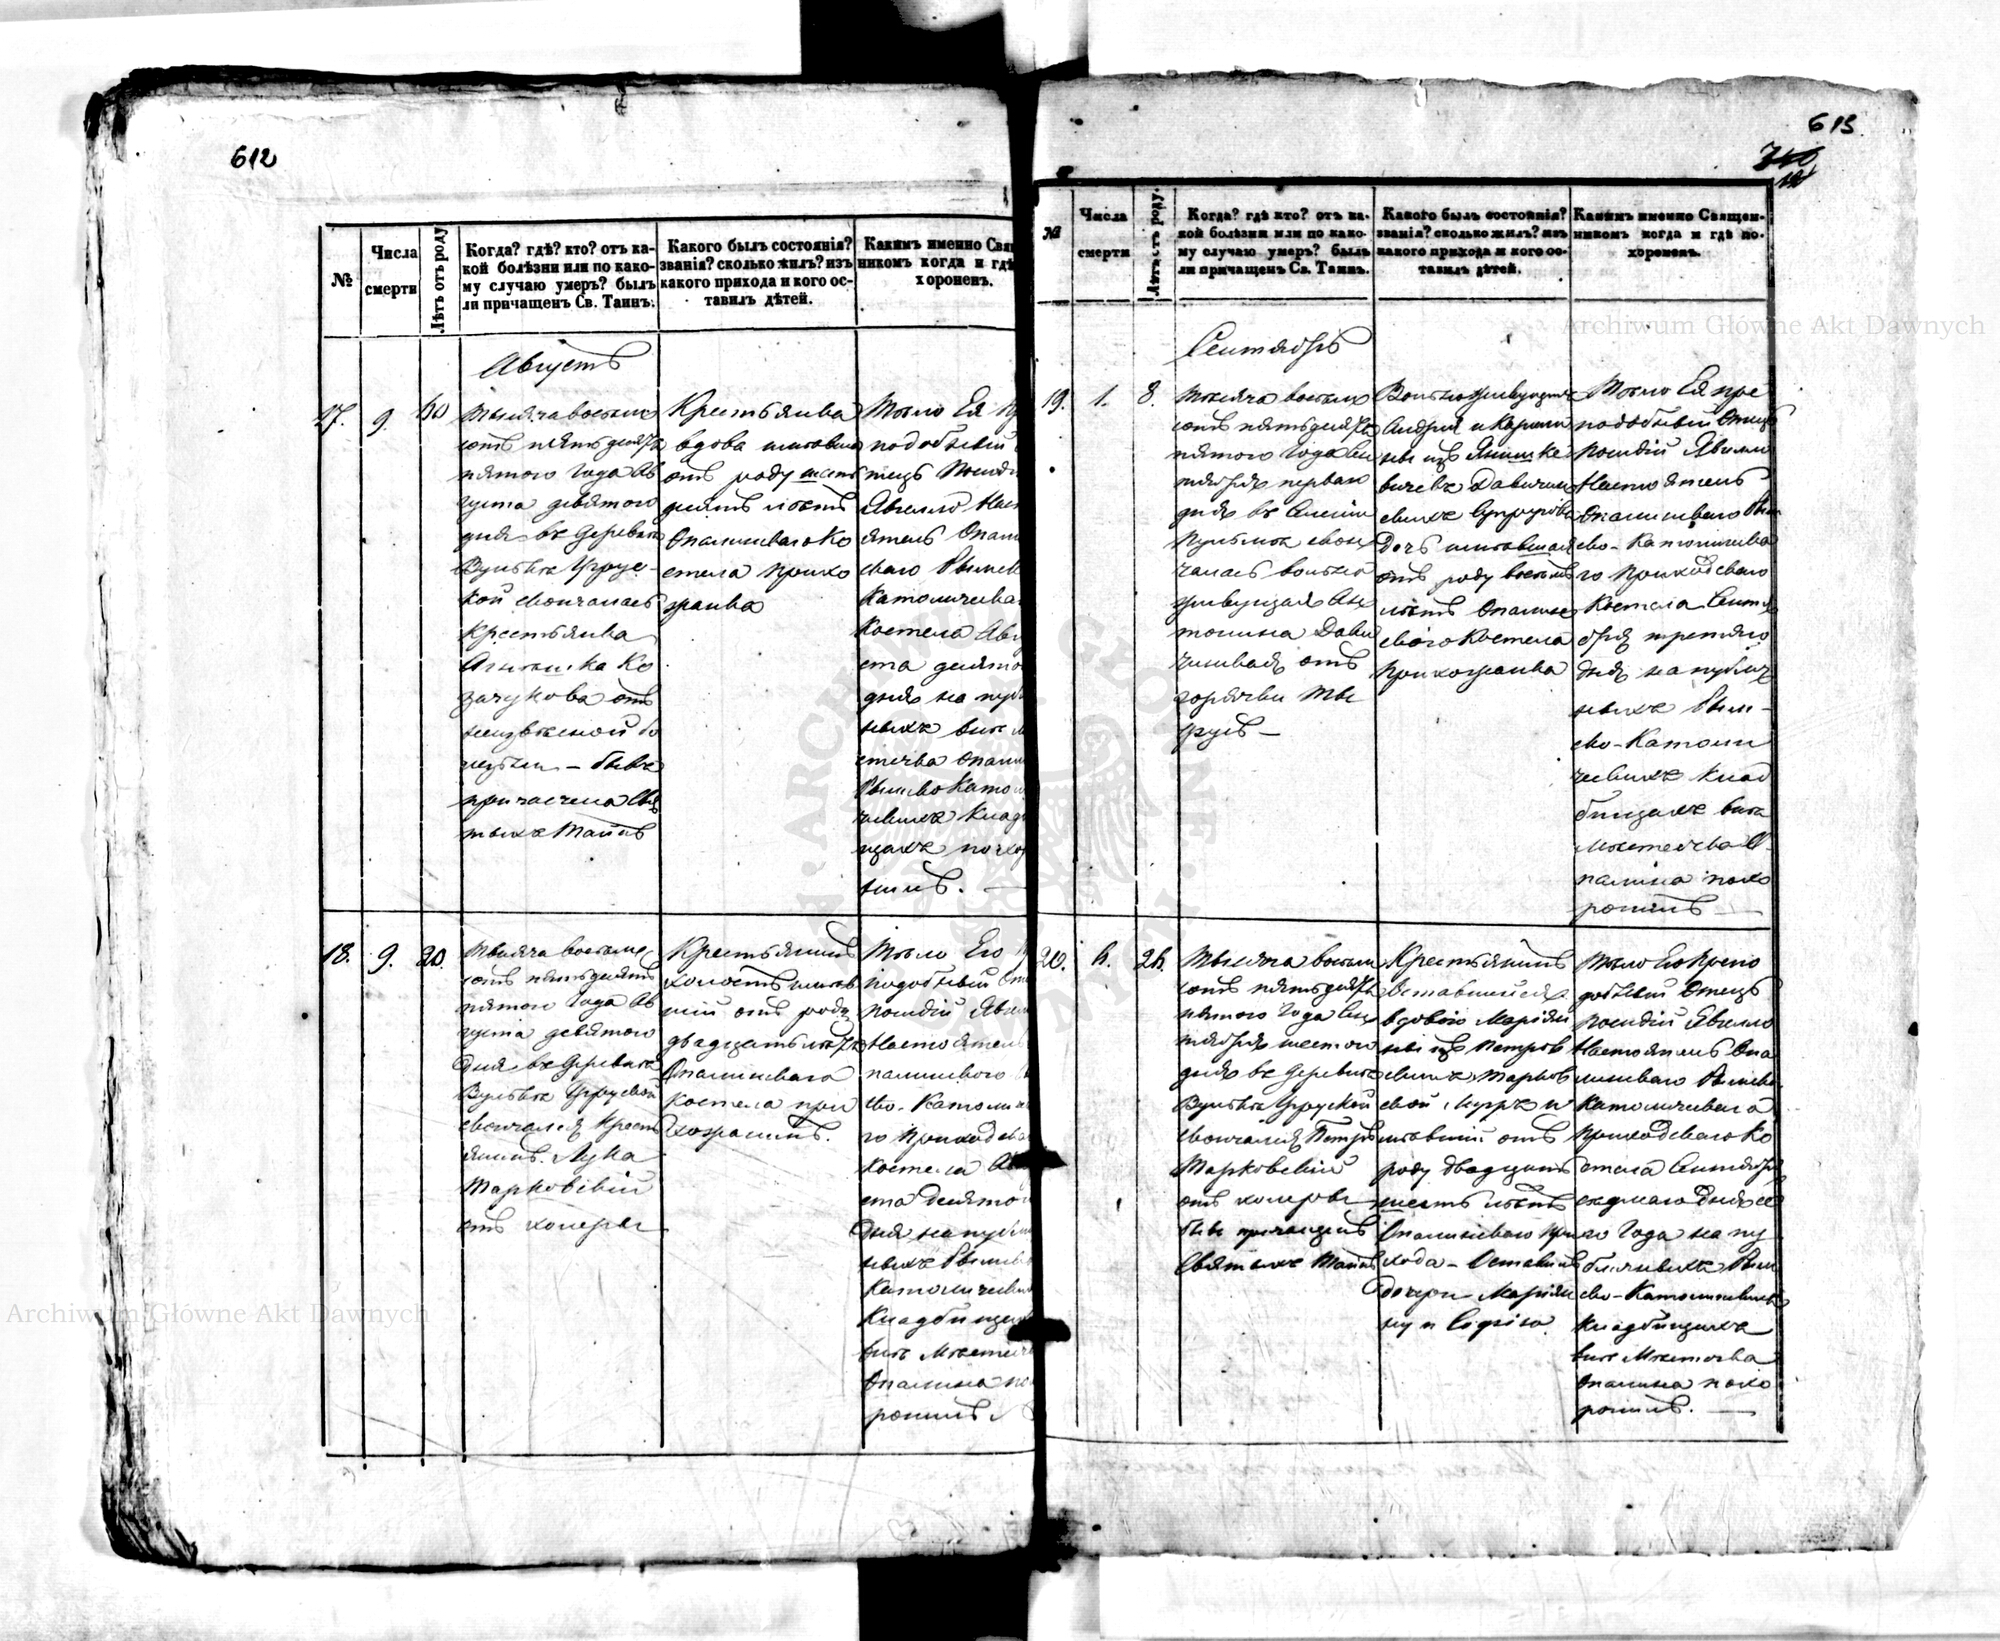 612
№
Числа
смерти
Лѣтъ отъ роду
Когда? гдѣ? кто? отъ ка-
кой болѣзни или по како-
му случаю умеръ? былъ
ли причащенъ Св. Таинъ.
Какого былъ состоянія?
званія? сколько жилъ? изъ
какого прихода и кого ос-
тавилъ дѣтей.
Какимъ именно Свя
никомъ когда и гдѣ
хороненъ.
Августъ
17.
9.
60
Тысяча восьмь
сотъ пятьдесятъ
пятого Года Ав
густа девятого
дня въ деревнѣ
Вулькѣ
кой скончалась
Крестьянка
Агнешка Ко
зачукова отъ
неизвѣсной бо
лезни – бывъ
причасчена Свя
тыхъ Таинъ
Крестьянка
вдова имевша
отъ роду шесть
десятъ лѣтъ
Опалинскаго Ко
стела прихо
жанка
Тѣло Ея
подобный
тецъ
Явелло Нас
ятель Опали
скаго Рымск
Католическа
Костела Авгу
ста десято
дня на пуб
ныхъ внѣ м
стечка Опали
Рымско Като
лическихъ Клад
щахъ похо
18.
9.
20.
Тысяча восьмь
сотъ пятьдесятъ
пятого Года Ав
густа девятого
Дня въ Деревнѣ
Вулькѣ
скончался Крест
янинъ Лука
Тарковскій
отъ холеры
Крестьянинъ
холостъ имев
шій отъ роду
двадцать лѣтъ
Опалинскаго
костела при
хожанинъ.
Тѣло Его
подобный
Явелло
Настоятель
палинского
ско-Католиче
го Приходска
Костела Ав
ста Десято
Дня на публи
ныхъ Рымско
Католически
Кладбищах
внѣ Местеч
Опалина по
ронилъ
613
№
Числа
смерти
Лѣтъ отъ роду.
Когда? гдѣ кто? отъ ка-
кой болѣзни или по како-
му случаю умеръ? былъ
ли причащенъ Св. Таинъ.
Какого былъ состоянія?
званія? сколько жилъ? изъ
какого прихода и кого ос-
тавилъ дѣтей.
Какимъ именно Священ-
никомъ когда и гдѣ по-
хороненъ.
Сентябрь
19.
1.
8.
Тысяча восьмь
сотъ пятьдесятъ
пятого Года Сен
тября первого
дня въ Селеніи
скон
чалась вольно
живущая Ан
тонина Дави
отъ
горячки
Вольноживущихъ
Андрея и Каролы
ны изъ
Дочь имевшая
отъ роду восемь
лѣтъ Опалин
скаго Костела
Прихожанка
Тѣло Ея пре
подобный Отецъ
Явелло
Настоятель
Опалинскаго Рым
ско-Католическа
го Приходскаго
Костела Сентя
бря третяго
дня на публич
ныхъ Рым-
ско-Католи
ческихъ Клад
бищахъ внѣ
Мѣстечка О
палина похо
ронилъ
20.
6.
26.
Тысяча восьмь
сотъ пятьдесятъ
пятого Года Сен
тября шестого
дня въ деревнѣ
Вулькѣ
скончался Петръ
Тарковскій
отъ холеры
бывъ причащенъ
Святыхъ Таинъ
Крестьянинъ
Оставшейся
вдовою Маріян
ны изъ Петров
скихъ Тарков
ской Мужъ и
имевшій отъ
роду двадцать
шесть лѣтъ
Опалинскаго при
хода – Оставилъ
Дочери Маріян
ну и Софію
Тѣло Его Препо
добный Отецъ
Явелло
Настоятель Опа
линскаго Рымско
Католическаго
Приходскаго Ко
стела Сентября
седмаго Дня се
го Года на пу
бличныхъ Рым
ско-Католическихъ
Кладбищахъ
внѣ Местечка
Опалина похо
ронилъ.
Archiwum Główne Akt Dawnych
Archiwum Główne Akt Dawnych